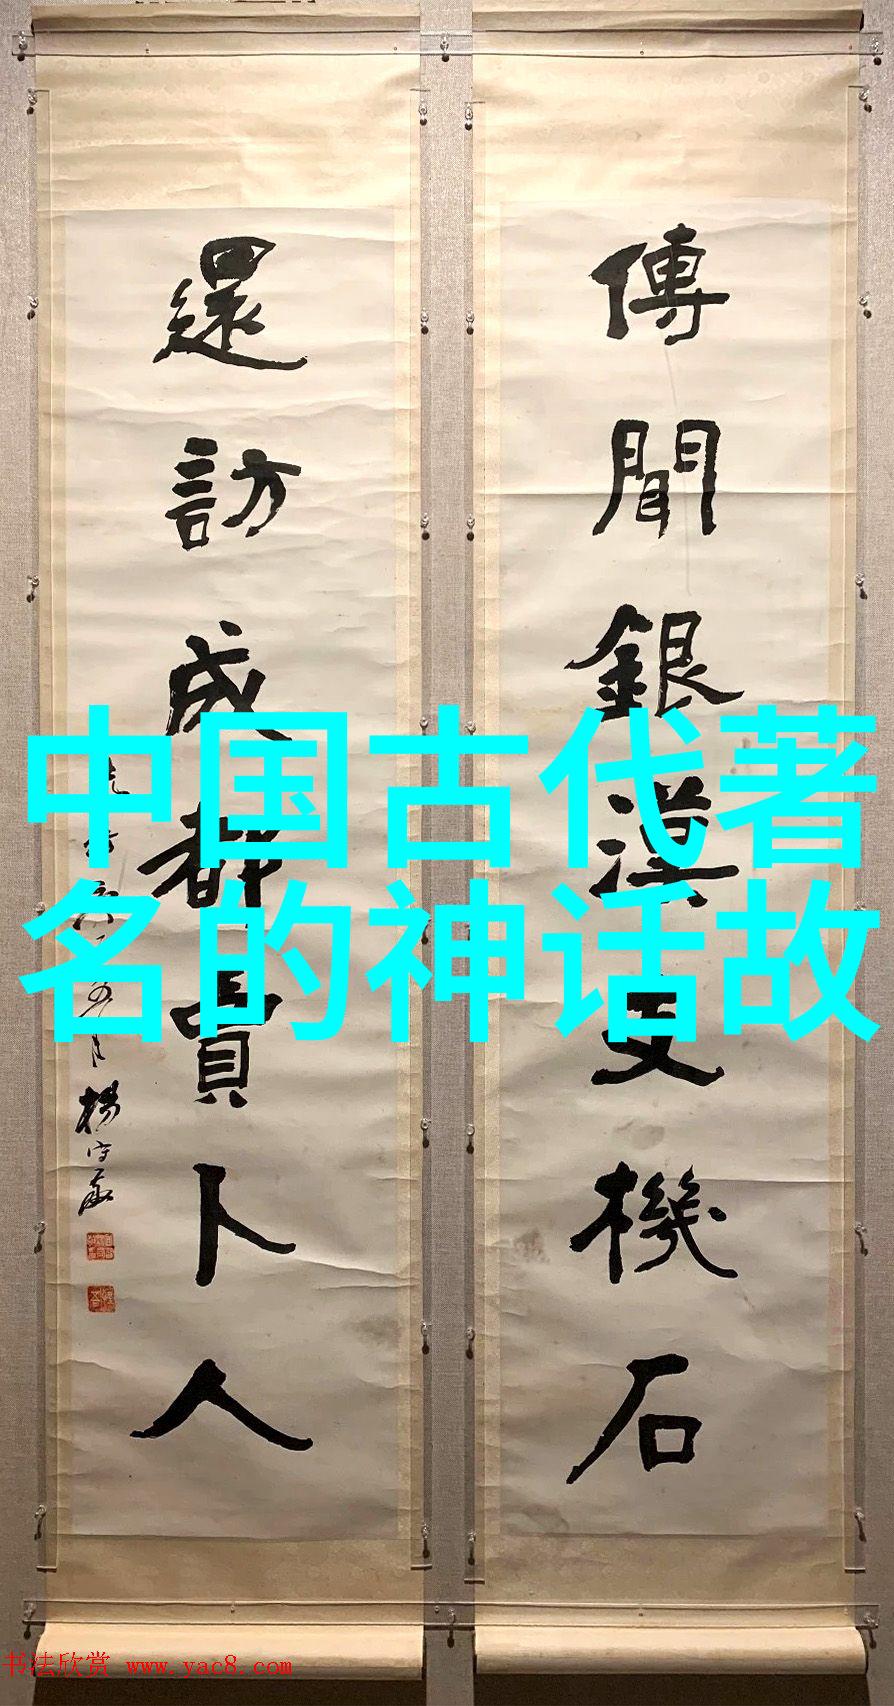 傳聞銀漢支機石
還訪成都賣卜人
楊守敬
中国古代著
名的神话故
书法欣赏 www.yac8.com